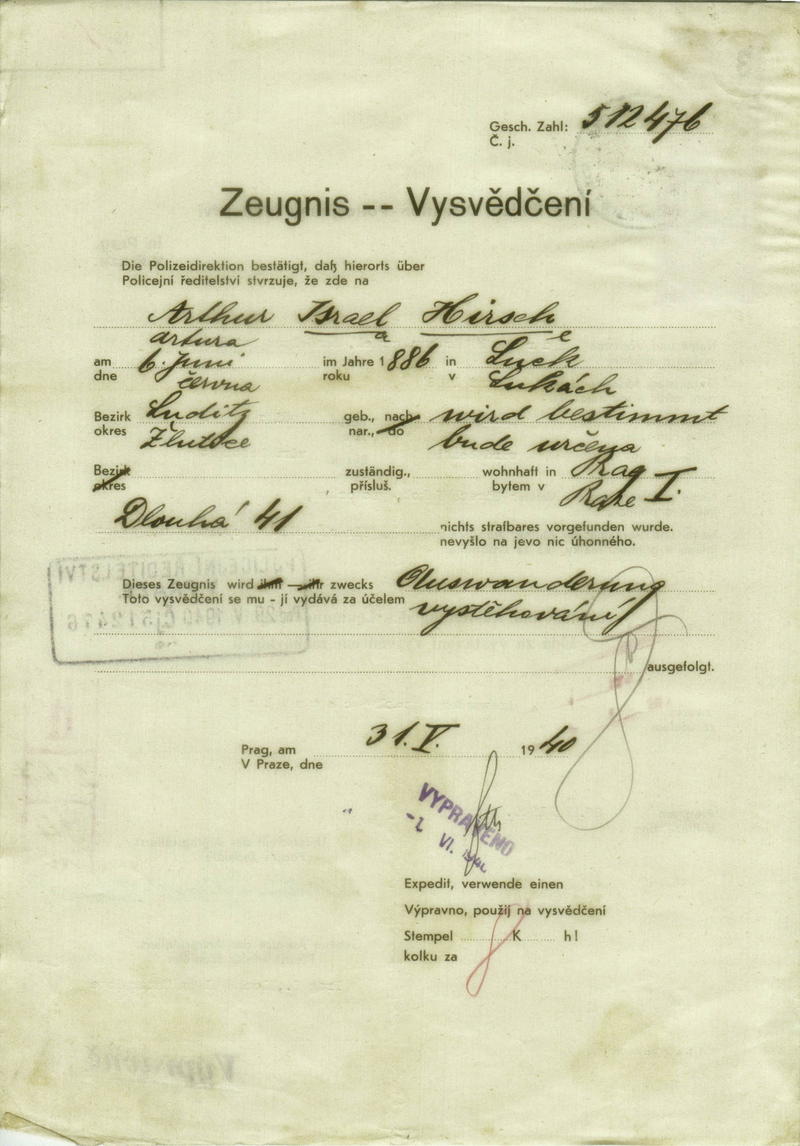 Gesch. Zahl: 512476
Č. j.
Zeugnis -- Vysvědčení
Die Polizeidirektion bestätigt, daß hierorts über
Policejní ředitelství stvrzuje, že zde na
Arthur Israel Hirsch
artura a e
am 6. Juni im Jahre 1886 in Luck
dne června roku v Lukách
Bezirk Luditz geb., nach wird bestimmt
okres Žlutice nar., do bude určena
Bezirk zuständig., wohnhaft in Prag
okres přísluš. bytem v Praze I.
Dlouhá 41 nichts strafbares vorgefunden wurde.
nevyšlo na jevo nic úhonného.
Dieses Zeugnis wird ihm — ihr zwecks Auswanderung
Toto vysvědčení se mu - jí vydává za účelem vystěhování
POLICEJNÍ ŘEDITELSTVÍ
ausgefolgt.
Prag, am 31. V. 1940
V Praze, dne
VYPRAVENO
VI.
Expedit, verwende einen
Výpravno, použij na vysvědčení
Stempel K h!
kolku za